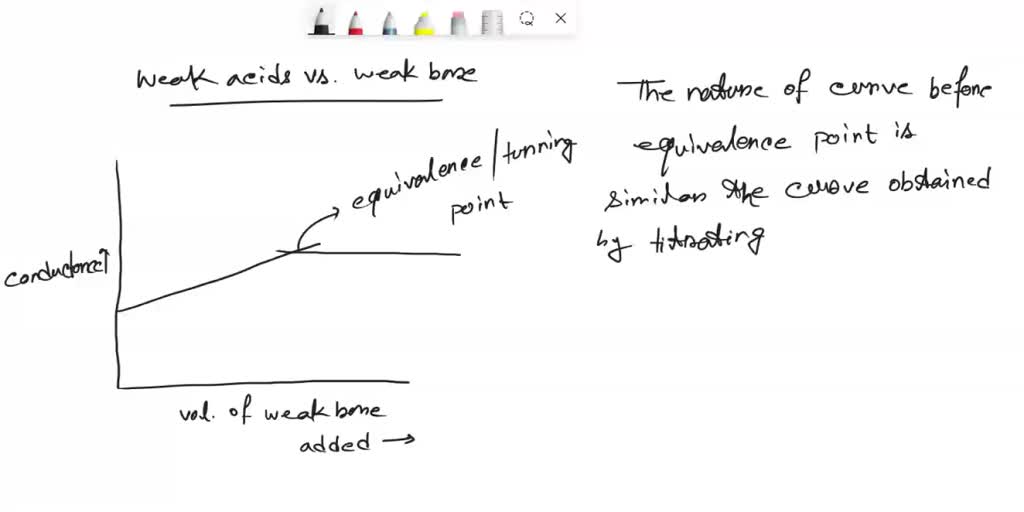 weak acids vs. weak base
The nature of curve before
equivalence point is
similar the curve obtained
by titrating
equivalence / turning
point
conductance↑
vol. of weak base
added →